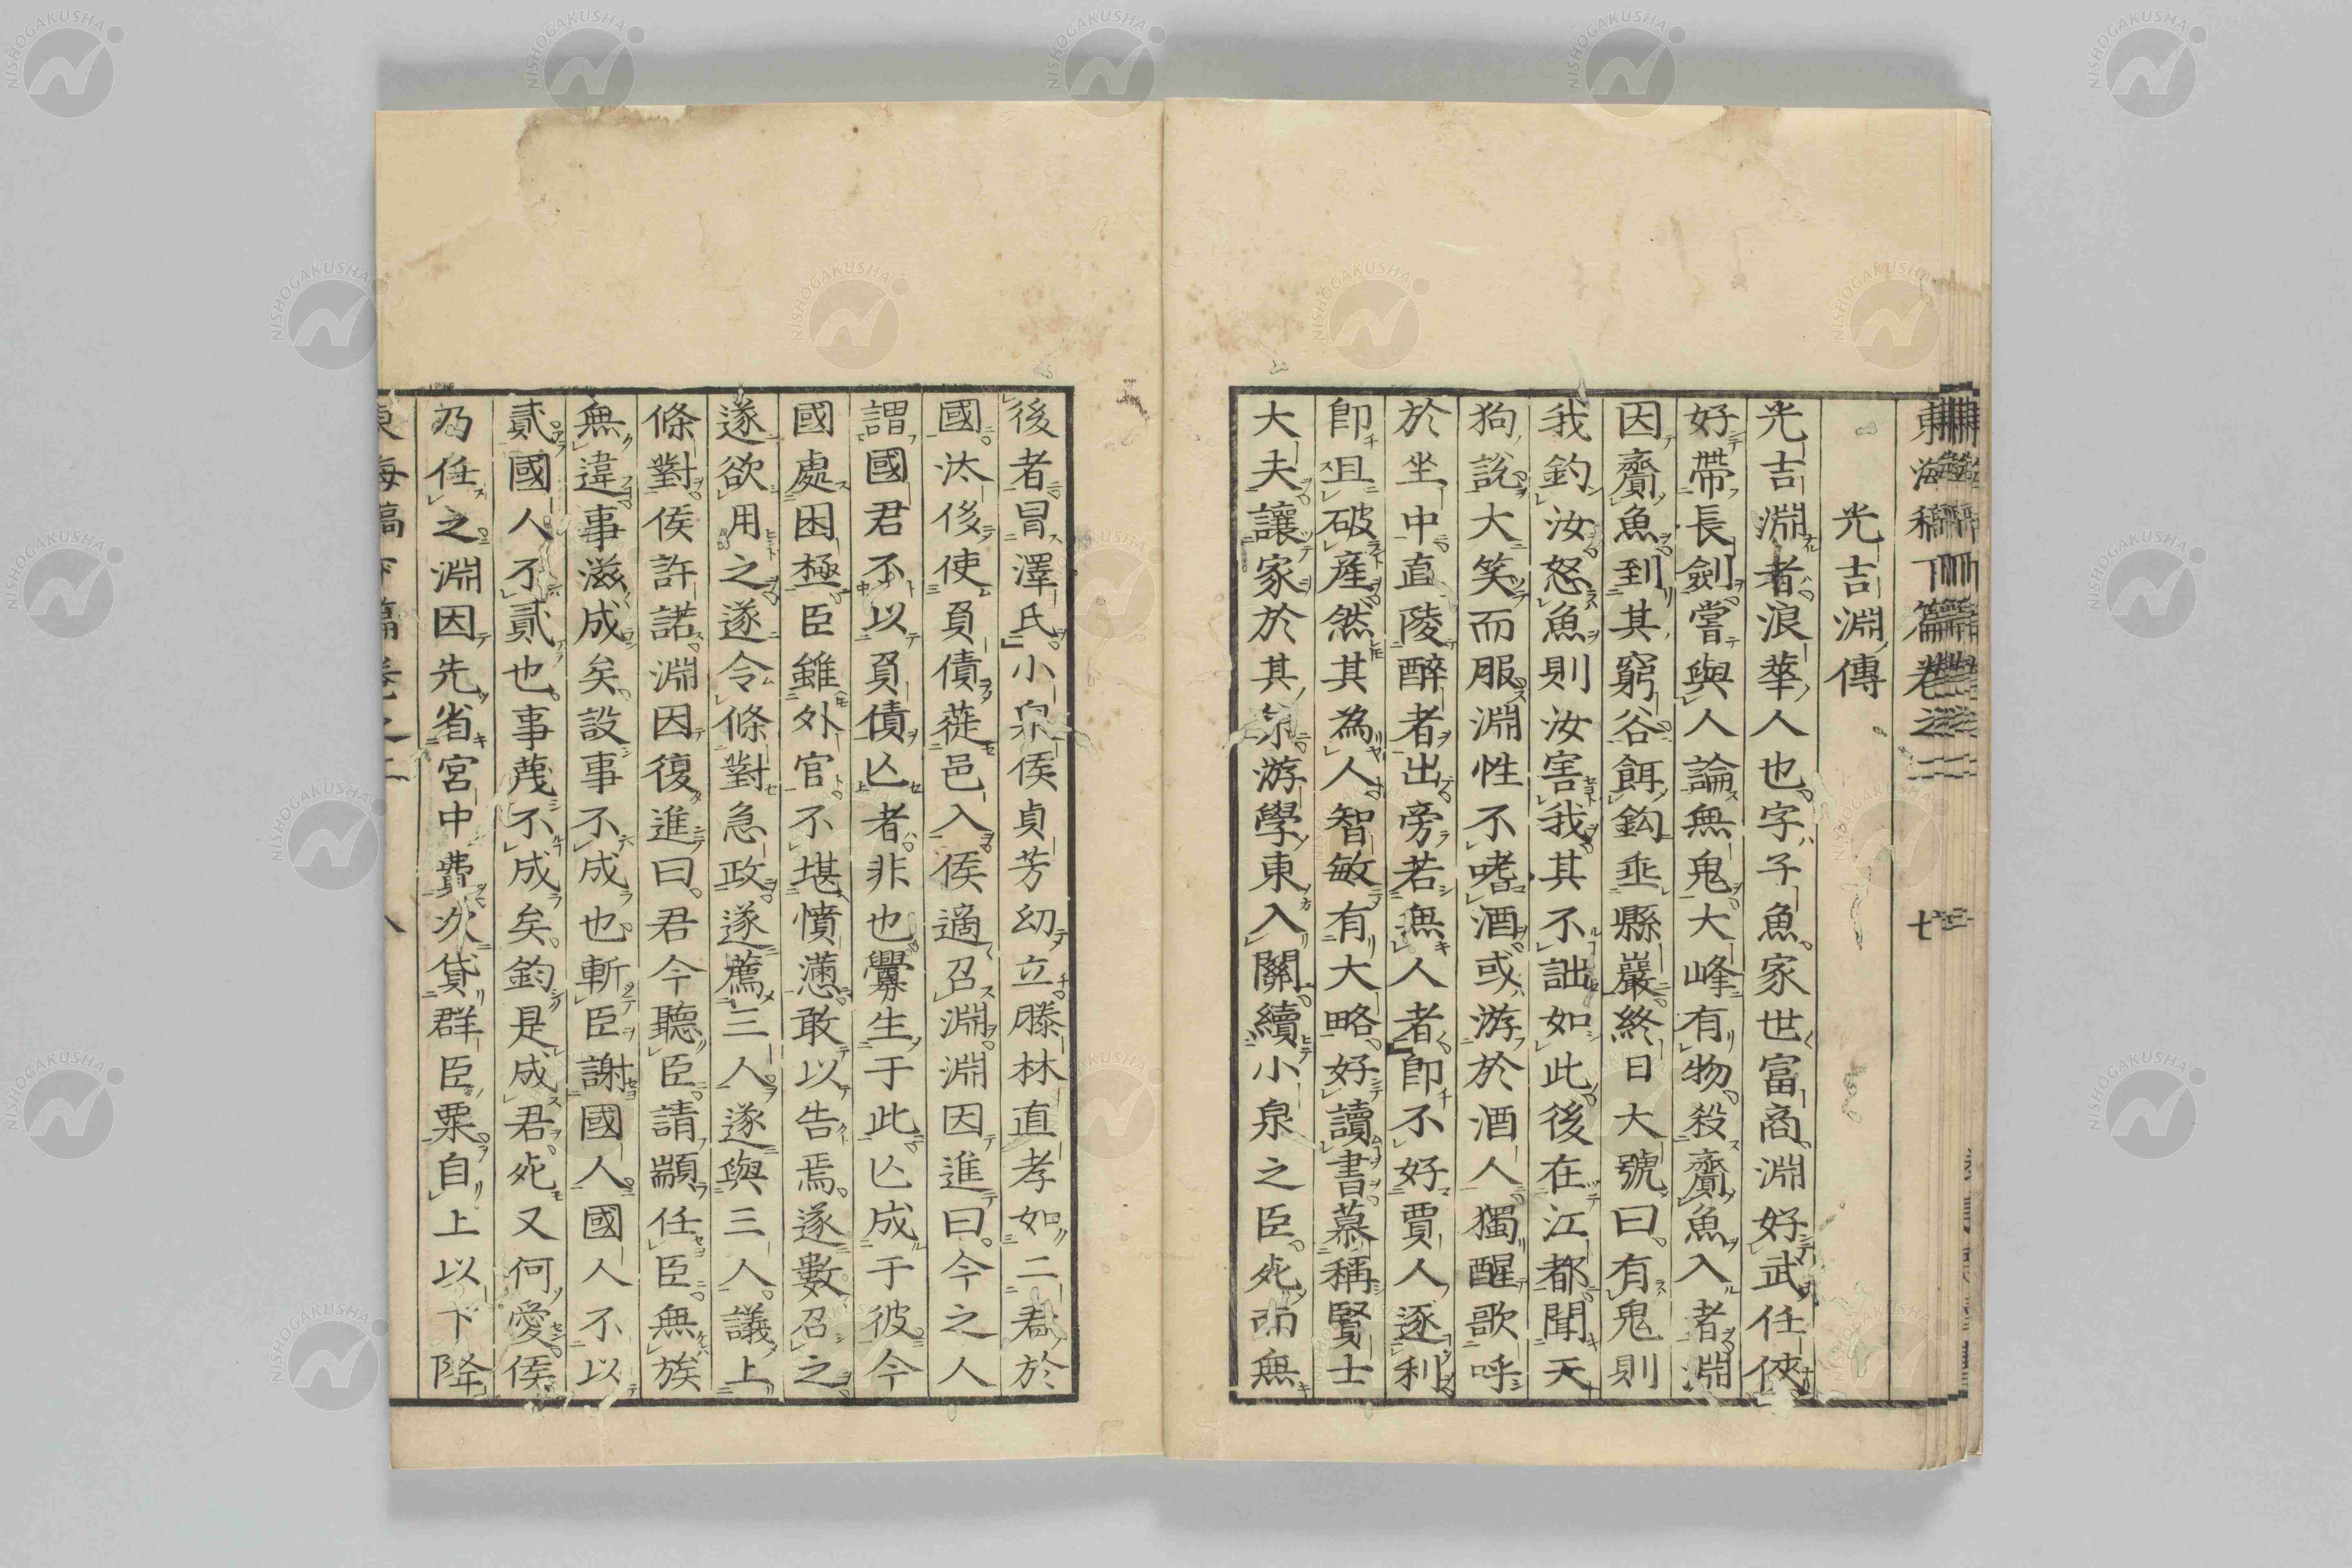 東海稿丁篇卷之二 七
光吉淵傳
光吉淵者浪華人也字子魚家世富商淵好武任俠
好帶長劍嘗與人論無鬼大峰有物殺齎魚入者淵
因齎魚到其窮谷餌鈎垂縣巖終日大號曰有鬼則
我釣汝怒魚則汝害我其不詘如此後在江都聞天
狗說大笑而服淵性不嗜酒或游於酒人獨醒歌呼
於坐中直陵醉者出旁若無人者卽不好賈人逐利
卽且破產然其為人智敏有大略好讀書慕稱賢士
大夫讓家於其弟游學東入關續小泉之臣死而無
後者冒澤氏小泉侯貞芳幼立滕林直孝如二君於
國汰侈使負債蓰邑入侯適召淵淵因進曰今之人
謂國君不以負債亾者非也釁生于此亾成于彼今
國處困極臣雖外官不堪憤懣敢以告焉遂數召之
遂欲用之遂令條對急政遂薦三人遂與三人議上
條對侯許諾淵因復進曰君今聽臣請顓任臣無族
無違事滋成矣設事不成也斬臣謝國人國人不以
貳國人不貳也事蔑不成矣鈞是成君死又何愛侯
乃任之淵因先省宮中費次貸群臣粟自上以下降
東海稿丁篇卷之二 八